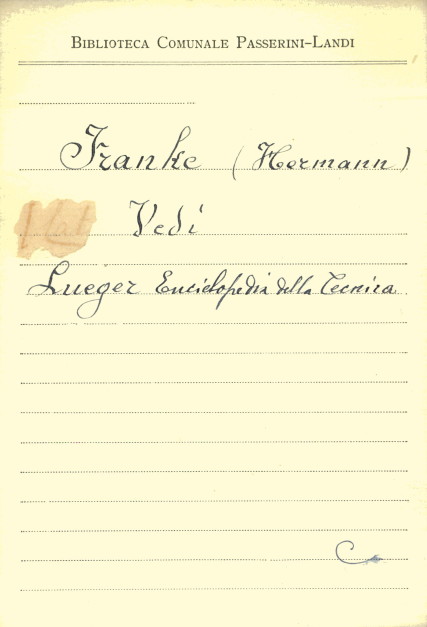 Biblioteca Comunale Passerini-Landi
Franke (Hermann)
Vedi
Lueger Enciclopedia della Tecnica